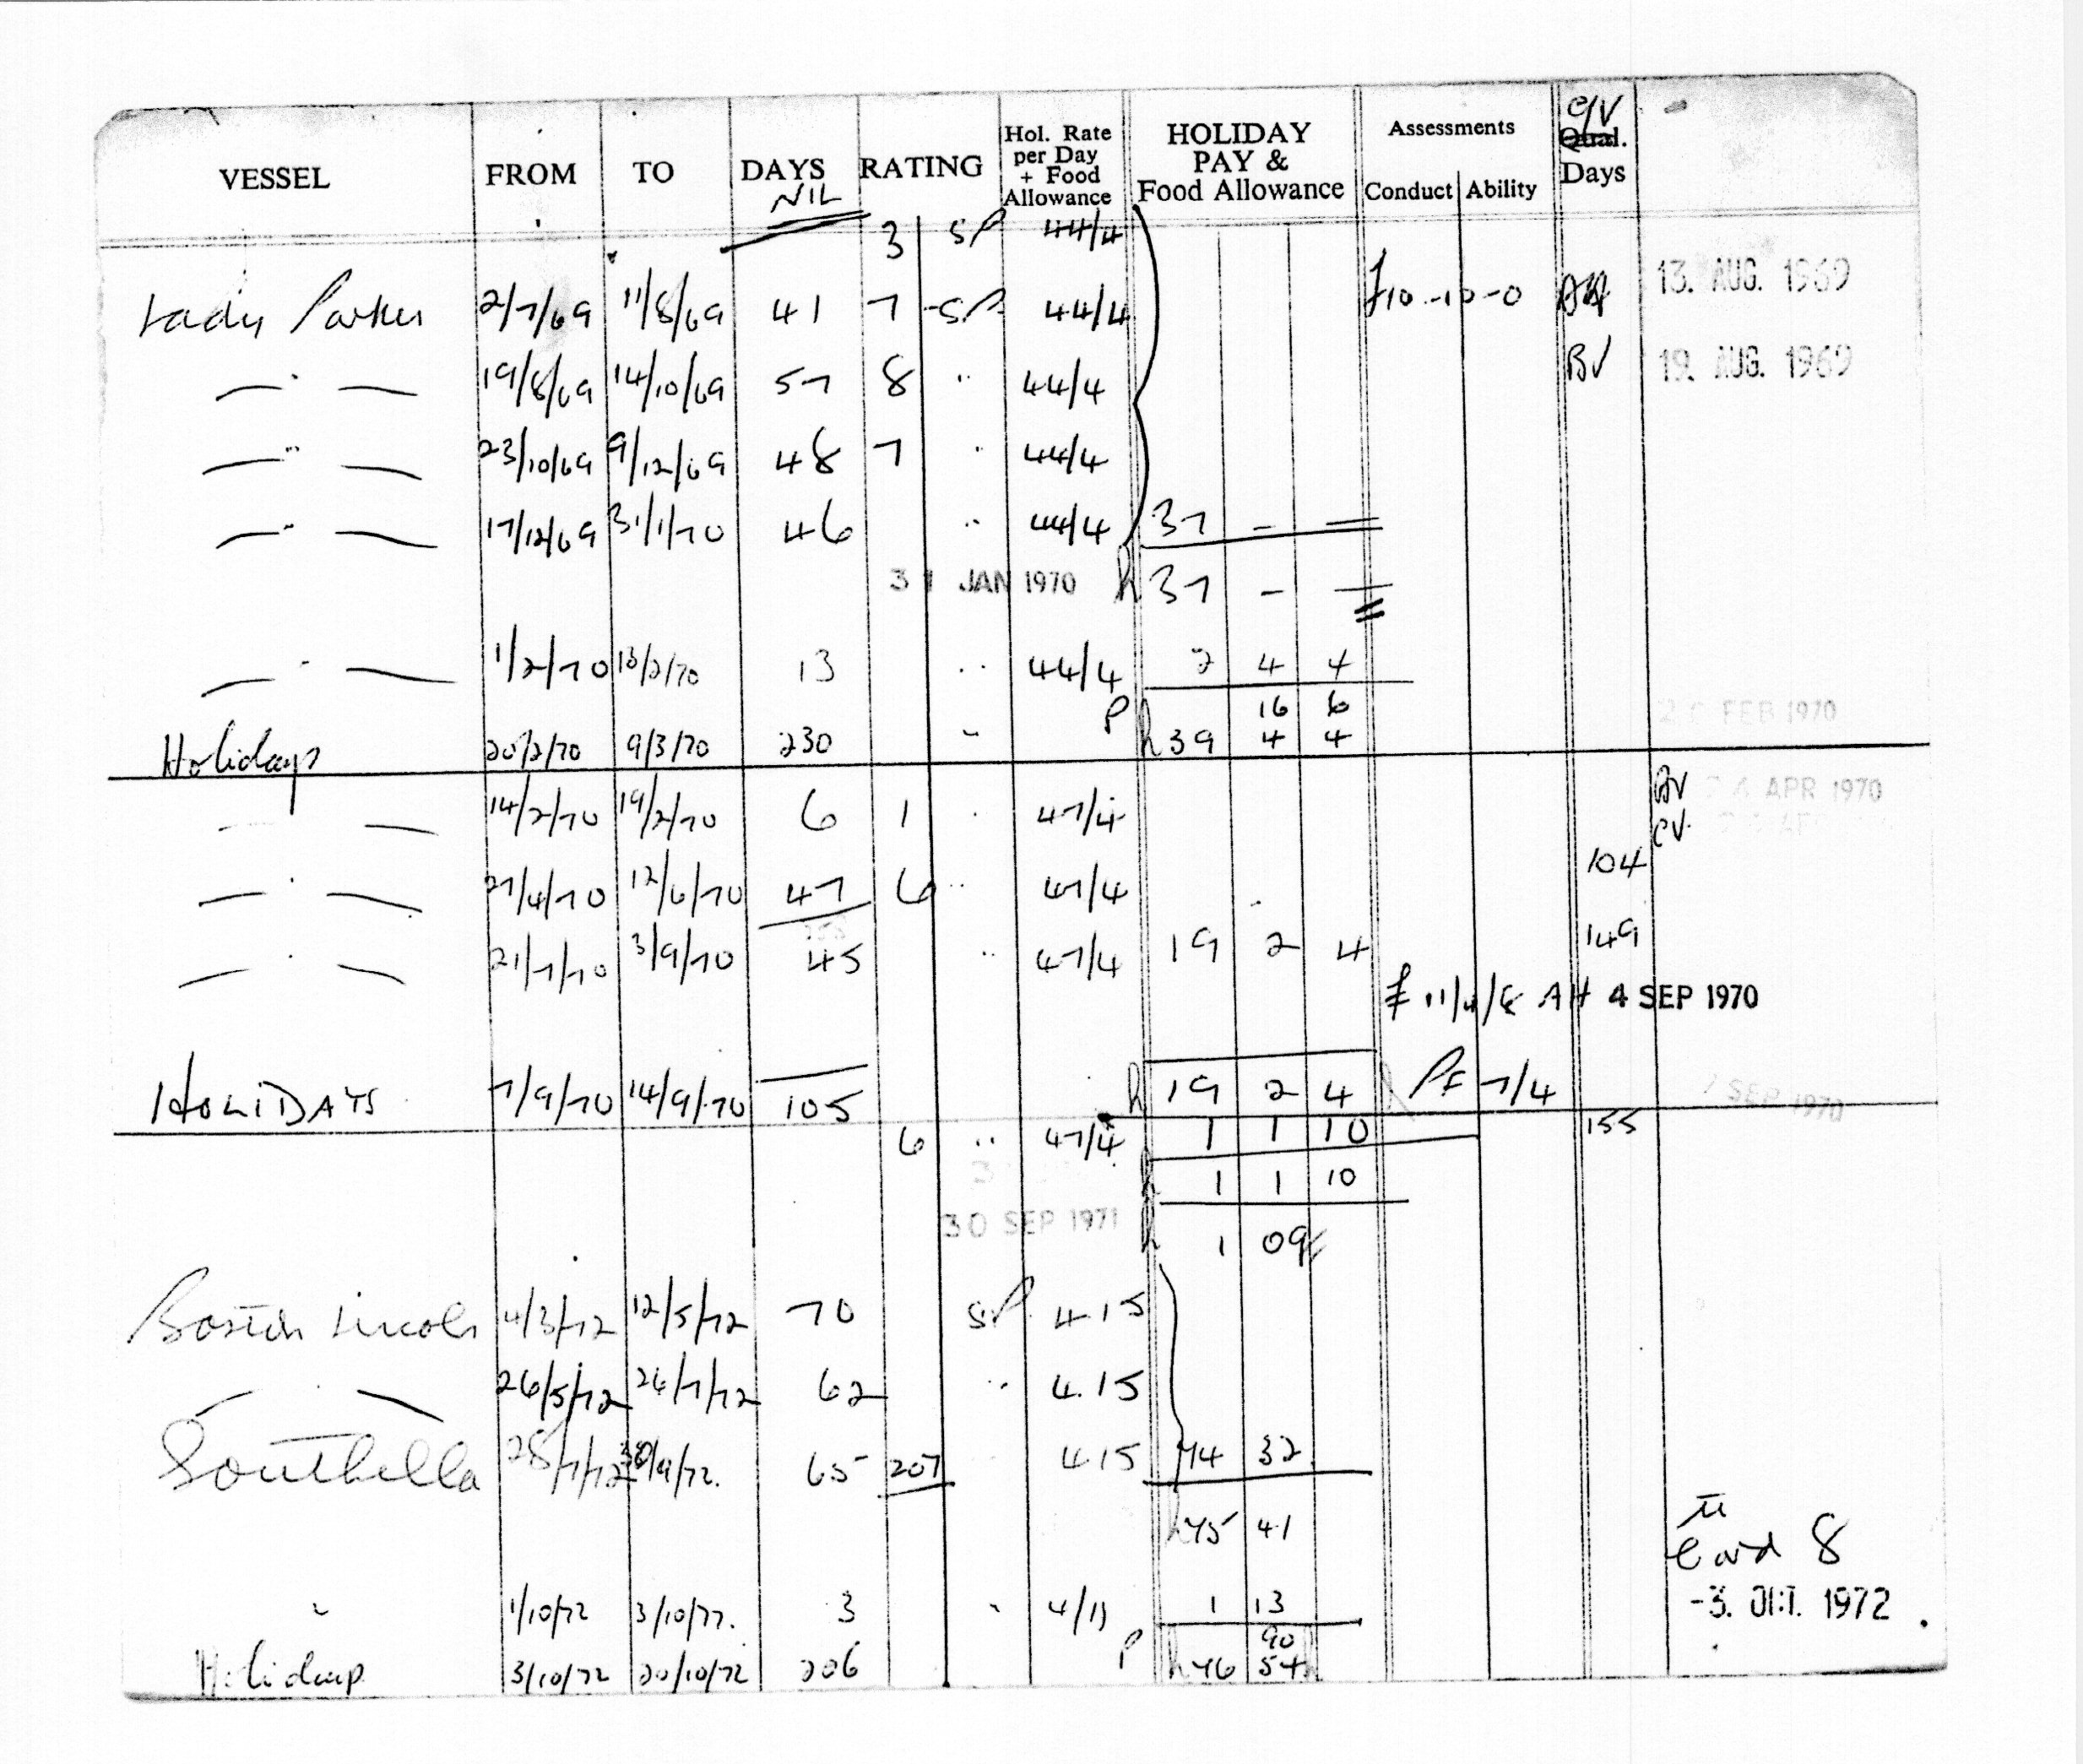 VESSEL FROM TO DAYS RATING Hol. Rate per Day + Food Allowance HOLIDAY PAY & Food Allowance Assessments Conduct Ability C/V Qual. Days
NIL
3 SP 44/4
Lady Parkes 2/7/69 11/8/69 41 7 SP 44/4 £10-10-0 13. AUG. 1969
—"— 19/8/69 14/10/69 57 8 " 44/4 BV 19. AUG. 1969
—"— 23/10/69 9/12/69 48 7 " 44/4
—"— 17/12/69 31/1/70 46 " 44/4 37 - -
31 JAN 1970 h 37 - -
—"— 1/2/70 13/2/70 13 " 44/4 2 4 4
P 16 6 26 FEB 1970
Holidays 20/2/70 9/3/70 230 " h 39 4 4
—"— 14/2/70 19/2/70 6 1 " 47/4 BV 24 APR 1970
CV.
—"— 27/4/70 12/6/70 47 6 " 47/4 104
—"— 21/7/70 3/9/70 45 " 47/4 19 2 4 149
£11/4/8 AH 4 SEP 1970
HOLIDAYS 7/9/70 14/9/70 105 h 19 2 4 PF 7/4 7 SEP 1970
6 " 47/4 1 1 10 155
h 1 1 10
30 SEP 1971 h 1 09
Boston Lincoln 4/3/72 12/5/72 70 SP 4.15
—"— 26/5/72 26/7/72 62 " 4.15
Southella 28/7/72 30/9/72. 65 207 4.15 74 32
h 75 41
Card 8
" 1/10/72 3/10/72. 3 " 4/11 1 13 -3. OCT. 1972
P 90
Holidays 3/10/72 20/10/72 206 h 76 54